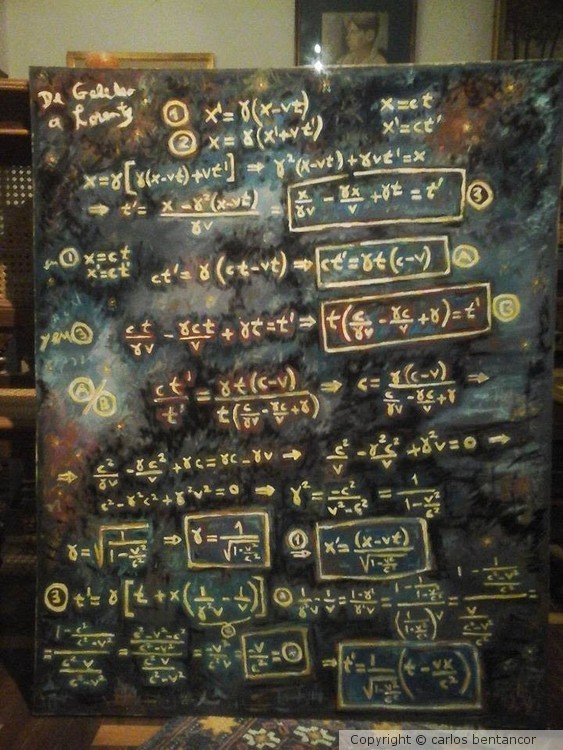 De Galileo
a Lorentz
① x' = γ(x-vt)    x = ct
② x = γ(x'+vt')    x' = ct'
x = γ[γ(x-vt)+vt'] ⇒ γ²(x-vt)+γvt' = x
⇒ t' = (x-γ²(x-vt))/(γv) = x/(γv) - γx/v + γt = t' ③
en ① x = ct
x' = ct'    ct' = γ(ct-vt) ⇒ ct' = γt(c-v) Ⓐ
y en ③ ct/(γv) - γct/v + γt = t' ⇒ t(c/(γv) - γc/v + γ) = t' Ⓑ
Ⓐ/Ⓑ ct'/t' = γt(c-v)/(t(c/(γv) - γc/v + γ)) ⇒ c = γ(c-v)/(c/(γv) - γc/v + γ) ⇒
⇒ c²/(γv) - γc²/v + γc = γc - γv ⇒ c²/v - γ²c²/v + γ²v = 0 ⇒
c² - γ²c² + γ²v² = 0 ⇒ γ² = -c²/(v²-c²) = 1/(1-v²/c²)
γ = √(1/(1-v²/c²)) ⇒ γ = 1/√(1-v²/c²) ① ⇒ x' = (x-vt)/√(1-v²/c²)
③ t' = γ[t + x(1/(γ²v) - 1/v)]    1/(γ²v) - 1/v = (1-γ²)/(γ²v) = (1 - 1/(1-v²/c²))/((1/(1-v²/c²))v) = (1 - c²/(c²-v²))/(c²v/(c²-v²))
= (1 - c²/(c²-v²))/(c²v/(c²-v²)) = ((c²-v²-c²)/(c²-v²))/(c²v/(c²-v²)) = -v²/(c²v) = -v/c² = ⇒ t' = 1/√(1-v²/c²) (t - vx/c²)
Copyright © carlos bentancor